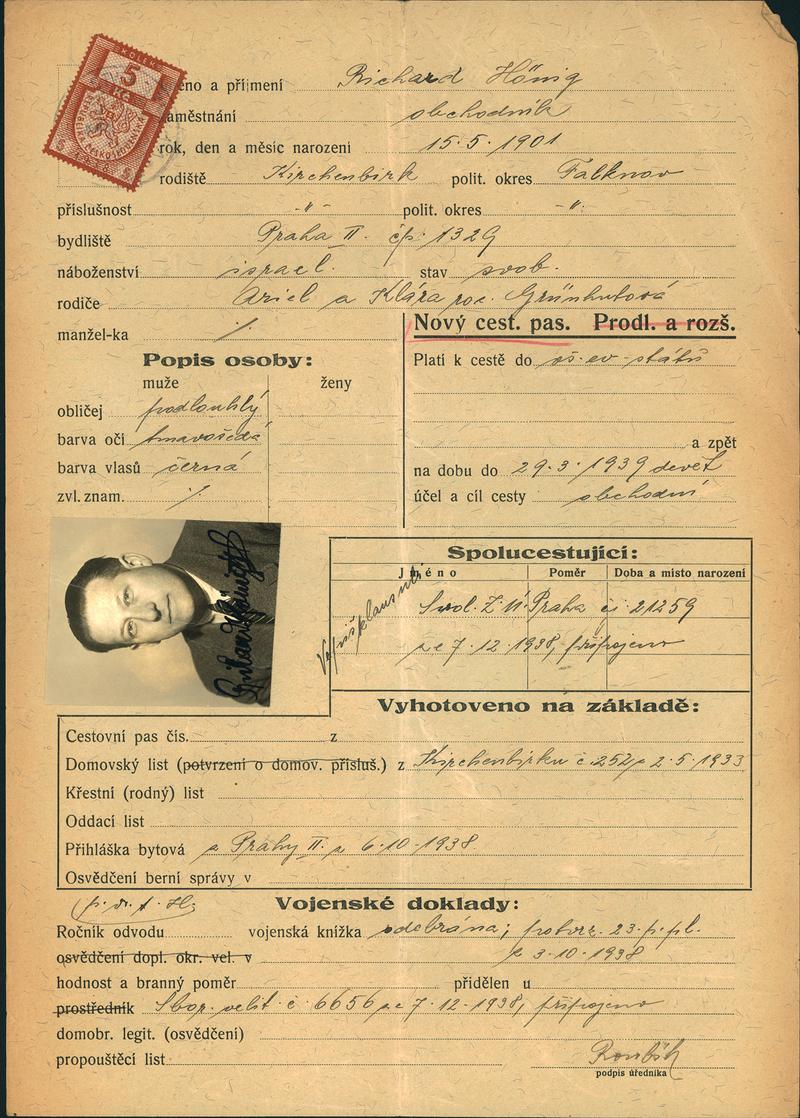 KOLEK
5
Kč
jméno a příjmení Richard Hönig
zaměstnání obchodník
rok, den a měsíc narození 15.5.1901
rodiště Kirchenbirk polit. okres Falknov
příslušnost -"- polit. okres -"-
bydliště Praha II. čp. 1329
náboženství israel. stav svob.
rodiče Ariel a Klára roz. Grünhutová
manžel-ka /.
Nový cest. pas. Prodl. a rozš.
Popis osoby:
muže ženy
obličej podlouhlý
barva očí tmavošedá
barva vlasů černá
zvl. znam. /.
Platí k cestě do států
a zpět
na dobu do 29.3.1939 devět
účel a cíl cesty obchodní
Spolucestující:
Jméno Poměr Doba a místo narození
Svol. Z.Ú. Praha čj. 21259
ze 7.12.1938, připojeno
Vyhotoveno na základě:
Cestovní pas čís. z
Domovský list (potvrzení o domov. přísluš.) z Kirchenbirku č. 252 z 2.5.1933
Křestní (rodný) list
Oddací list
Přihláška bytová z Prahy II. z 6.10.1938
Osvědčení berní správy v
Vojenské doklady:
Ročník odvodu vojenská knížka odebrána; potvrz. 23. p. pl.
osvědčení dopl. okr. vel. v z 3.10.1938
hodnost a branný poměr přidělen u
prostředník Sbor. velit. č. 6656 ze 7.12.1938, připojeno
domobr. legit. (osvědčení)
propouštěcí list
podpis úředníka